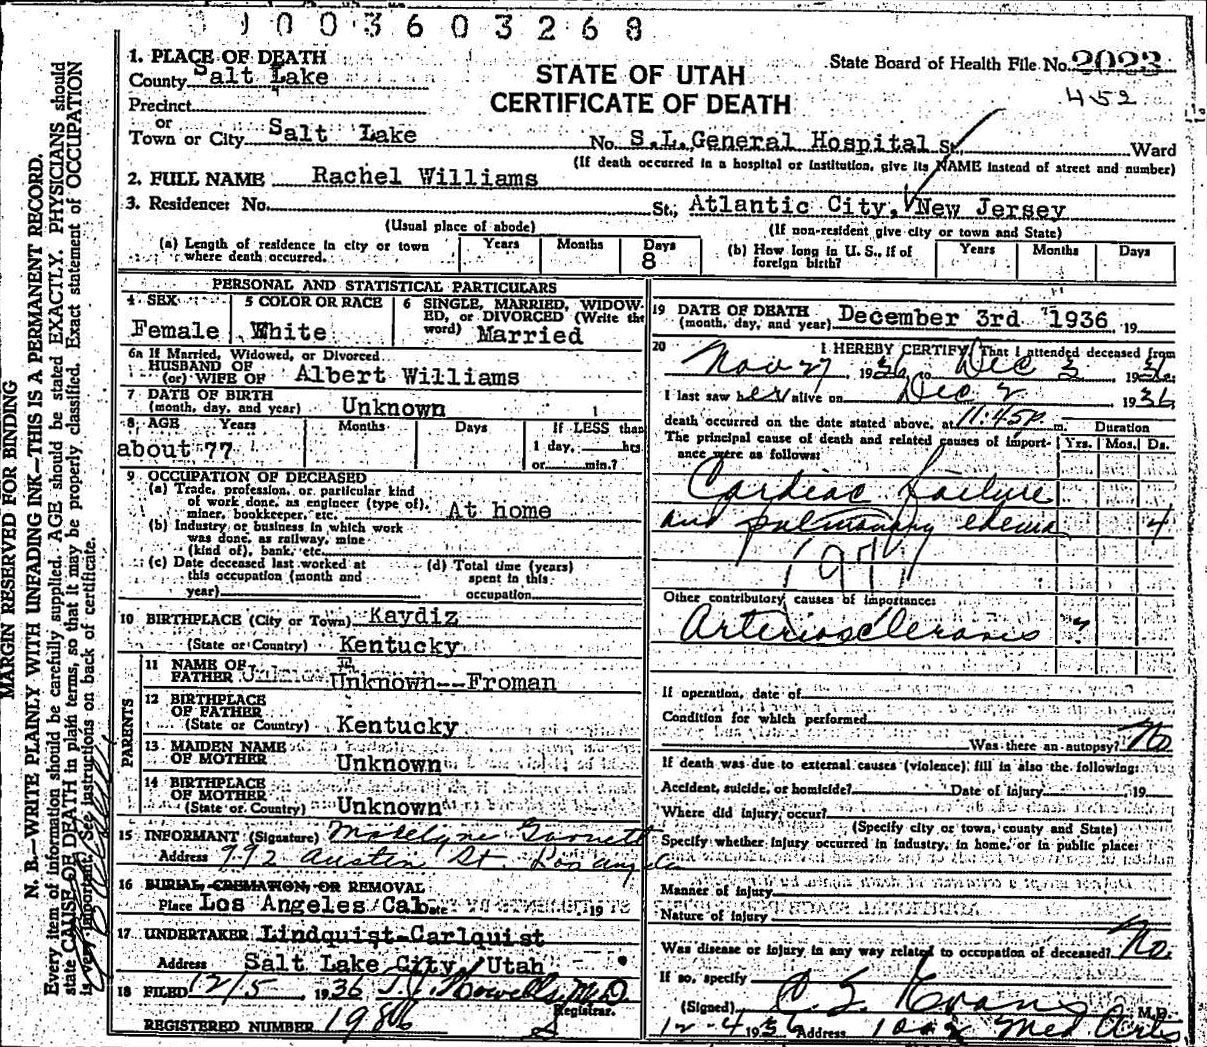 1003603268
1. PLACE OF DEATH
County Salt Lake
STATE OF UTAH
CERTIFICATE OF DEATH
State Board of Health File No. 2023
452
Precinct
or
Town or City Salt Lake No. S.L.General Hospital St. Ward
(If death occurred in a hospital or institution, give its NAME instead of street and number)
2. FULL NAME Rachel Williams
3. Residence: No. St.; Atlantic City, New Jersey
(Usual place of abode) (If non-resident give city or town and State)
(a) Length of residence in city or town where death occurred. Years Months Days 8
(b) How long in U. S., if of foreign birth? Years Months Days
PERSONAL AND STATISTICAL PARTICULARS
4 SEX Female
5 COLOR OR RACE White
6 SINGLE, MARRIED, WIDOWED, or DIVORCED (Write the word) Married
6a If Married, Widowed, or Divorced
HUSBAND OF
(or) WIFE OF Albert Williams
7 DATE OF BIRTH
(month, day, and year) Unknown
8 AGE Years Months Days If LESS than
about 77 1 day, hrs.
or min.?
9 OCCUPATION OF DECEASED
(a) Trade, profession, or particular kind
of work done, as engineer (type of),
miner, bookkeeper, etc. At home
(b) Industry or business in which work
was done, as railway, mine
(kind of), bank, etc.
(c) Date deceased last worked at
this occupation (month and
year)
(d) Total time (years)
spent in this
occupation
10 BIRTHPLACE (City or Town) Kaydiz
(State or Country) Kentucky
PARENTS
11 NAME OF
FATHER Unknown--Froman
12 BIRTHPLACE
OF FATHER
(State or Country) Kentucky
13 MAIDEN NAME
OF MOTHER Unknown
14 BIRTHPLACE
OF MOTHER
(State or Country) Unknown
15 INFORMANT (Signature) Garnett
Address 992 Austin St Los Angeles
16 BURIAL, CREMATION, OR REMOVAL
Place Los Angeles Cal Date 19
17 UNDERTAKER Lindquist-Carlquist
Address Salt Lake City, Utah
18 FILED 12/5, 1936 T.J. Howells, M.D.
Registrar.
REGISTERED NUMBER 1986
19 DATE OF DEATH
(month, day, and year) December 3rd 1936, 19
20 I HEREBY CERTIFY, That I attended deceased from
Nov 27, 1936, to Dec 3, 1936
I last saw her alive on Dec 2 1936
death occurred on the date stated above, at 11:45P m.
Duration
The principal cause of death and related causes of importance were as follows: Yrs. Mos. Ds.
Cardiac failure
and pulmonary edema 4
Other contributory causes of importance:
Arteriosclerosis ?
If operation, date of
Condition for which performed
Was there an autopsy? No
If death was due to external causes (violence) fill in also the following:
Accident, suicide, or homicide? Date of injury 19
Where did injury occur?
(Specify city or town, county and State)
Specify whether injury occurred in industry, in home, or in public place:
Manner of injury
Nature of injury
Was disease or injury in any way related to occupation of deceased? No.
If so, specify
(Signed) C S Evans M.D.
12-4 1936 Address 1002 Med Arts
MARGIN RESERVED FOR BINDING
N. B.—WRITE PLAINLY WITH UNFADING INK—THIS IS A PERMANENT RECORD.
Every item of information should be carefully supplied. AGE should be stated EXACTLY. PHYSICIANS should
state CAUSE OF DEATH in plain terms, so that it may be properly classified. Exact statement of OCCUPATION
is very important. See instructions on back of certificate.